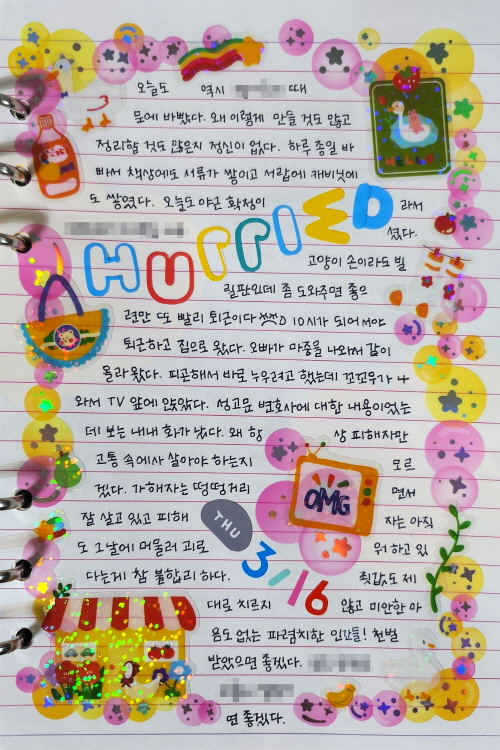 오늘도 역시 때
문에 바빴다. 왜 이렇게 만들 것도 많고
정리할 것도 많은지 정신이 없다. 하루 종일 바
빠서 책상에도 서류가 쌓이고 서랍에 캐비닛에
도 쌓였다. 오늘도 야근 확정이라서
HURRIED
셨다.
고양이 손이라도 빌
릴판인데 좀 도와주면 좋으
련만 또 빨리 퇴근이다 10시가 되어서야
퇴근하고 집으로 왔다. 오빠가 마중을 나와서 같이
올라왔다. 피곤해서 바로 누우려고 했는데 꼬꼬무가 나
와서 TV 앞에 앉았다. 성고문 변호사에 대한 내용이었는
데 보는 내내 화가 났다. 왜 항상 피해자만
고통 속에서 살아야 하는지 모르
겠다. 가해자는 떵떵거리면서
OMG
잘 살고 있고 피해자는 아직
THU
도 그날에 머물러 괴로워하고 있
3/16
다는게 참 불합리 하다. 죗값도 제
대로 치르지 않고 미안한 마
음도 없는 파렴치한 인간들! 천벌
받았으면 좋겠다.
면 좋겠다.